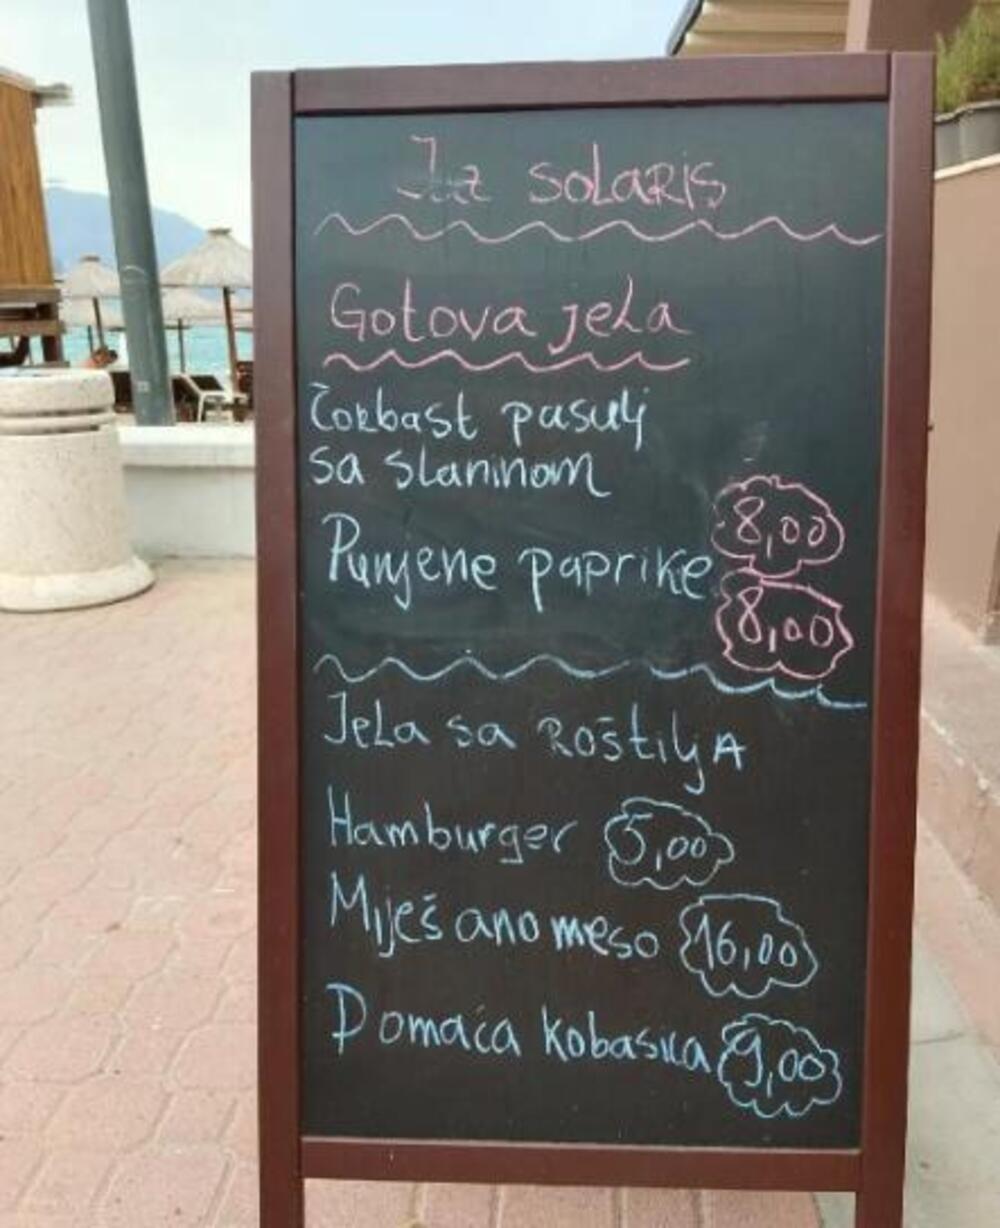 Iz SOLARIS
Gotova jela
Čorbast pasulj
sa slaninom
8,00
Punjene paprike
8,00
Jela sa ROŠtiljA
Hamburger 5,00
Miješano meso 16,00
Domaća kobasica 9,00